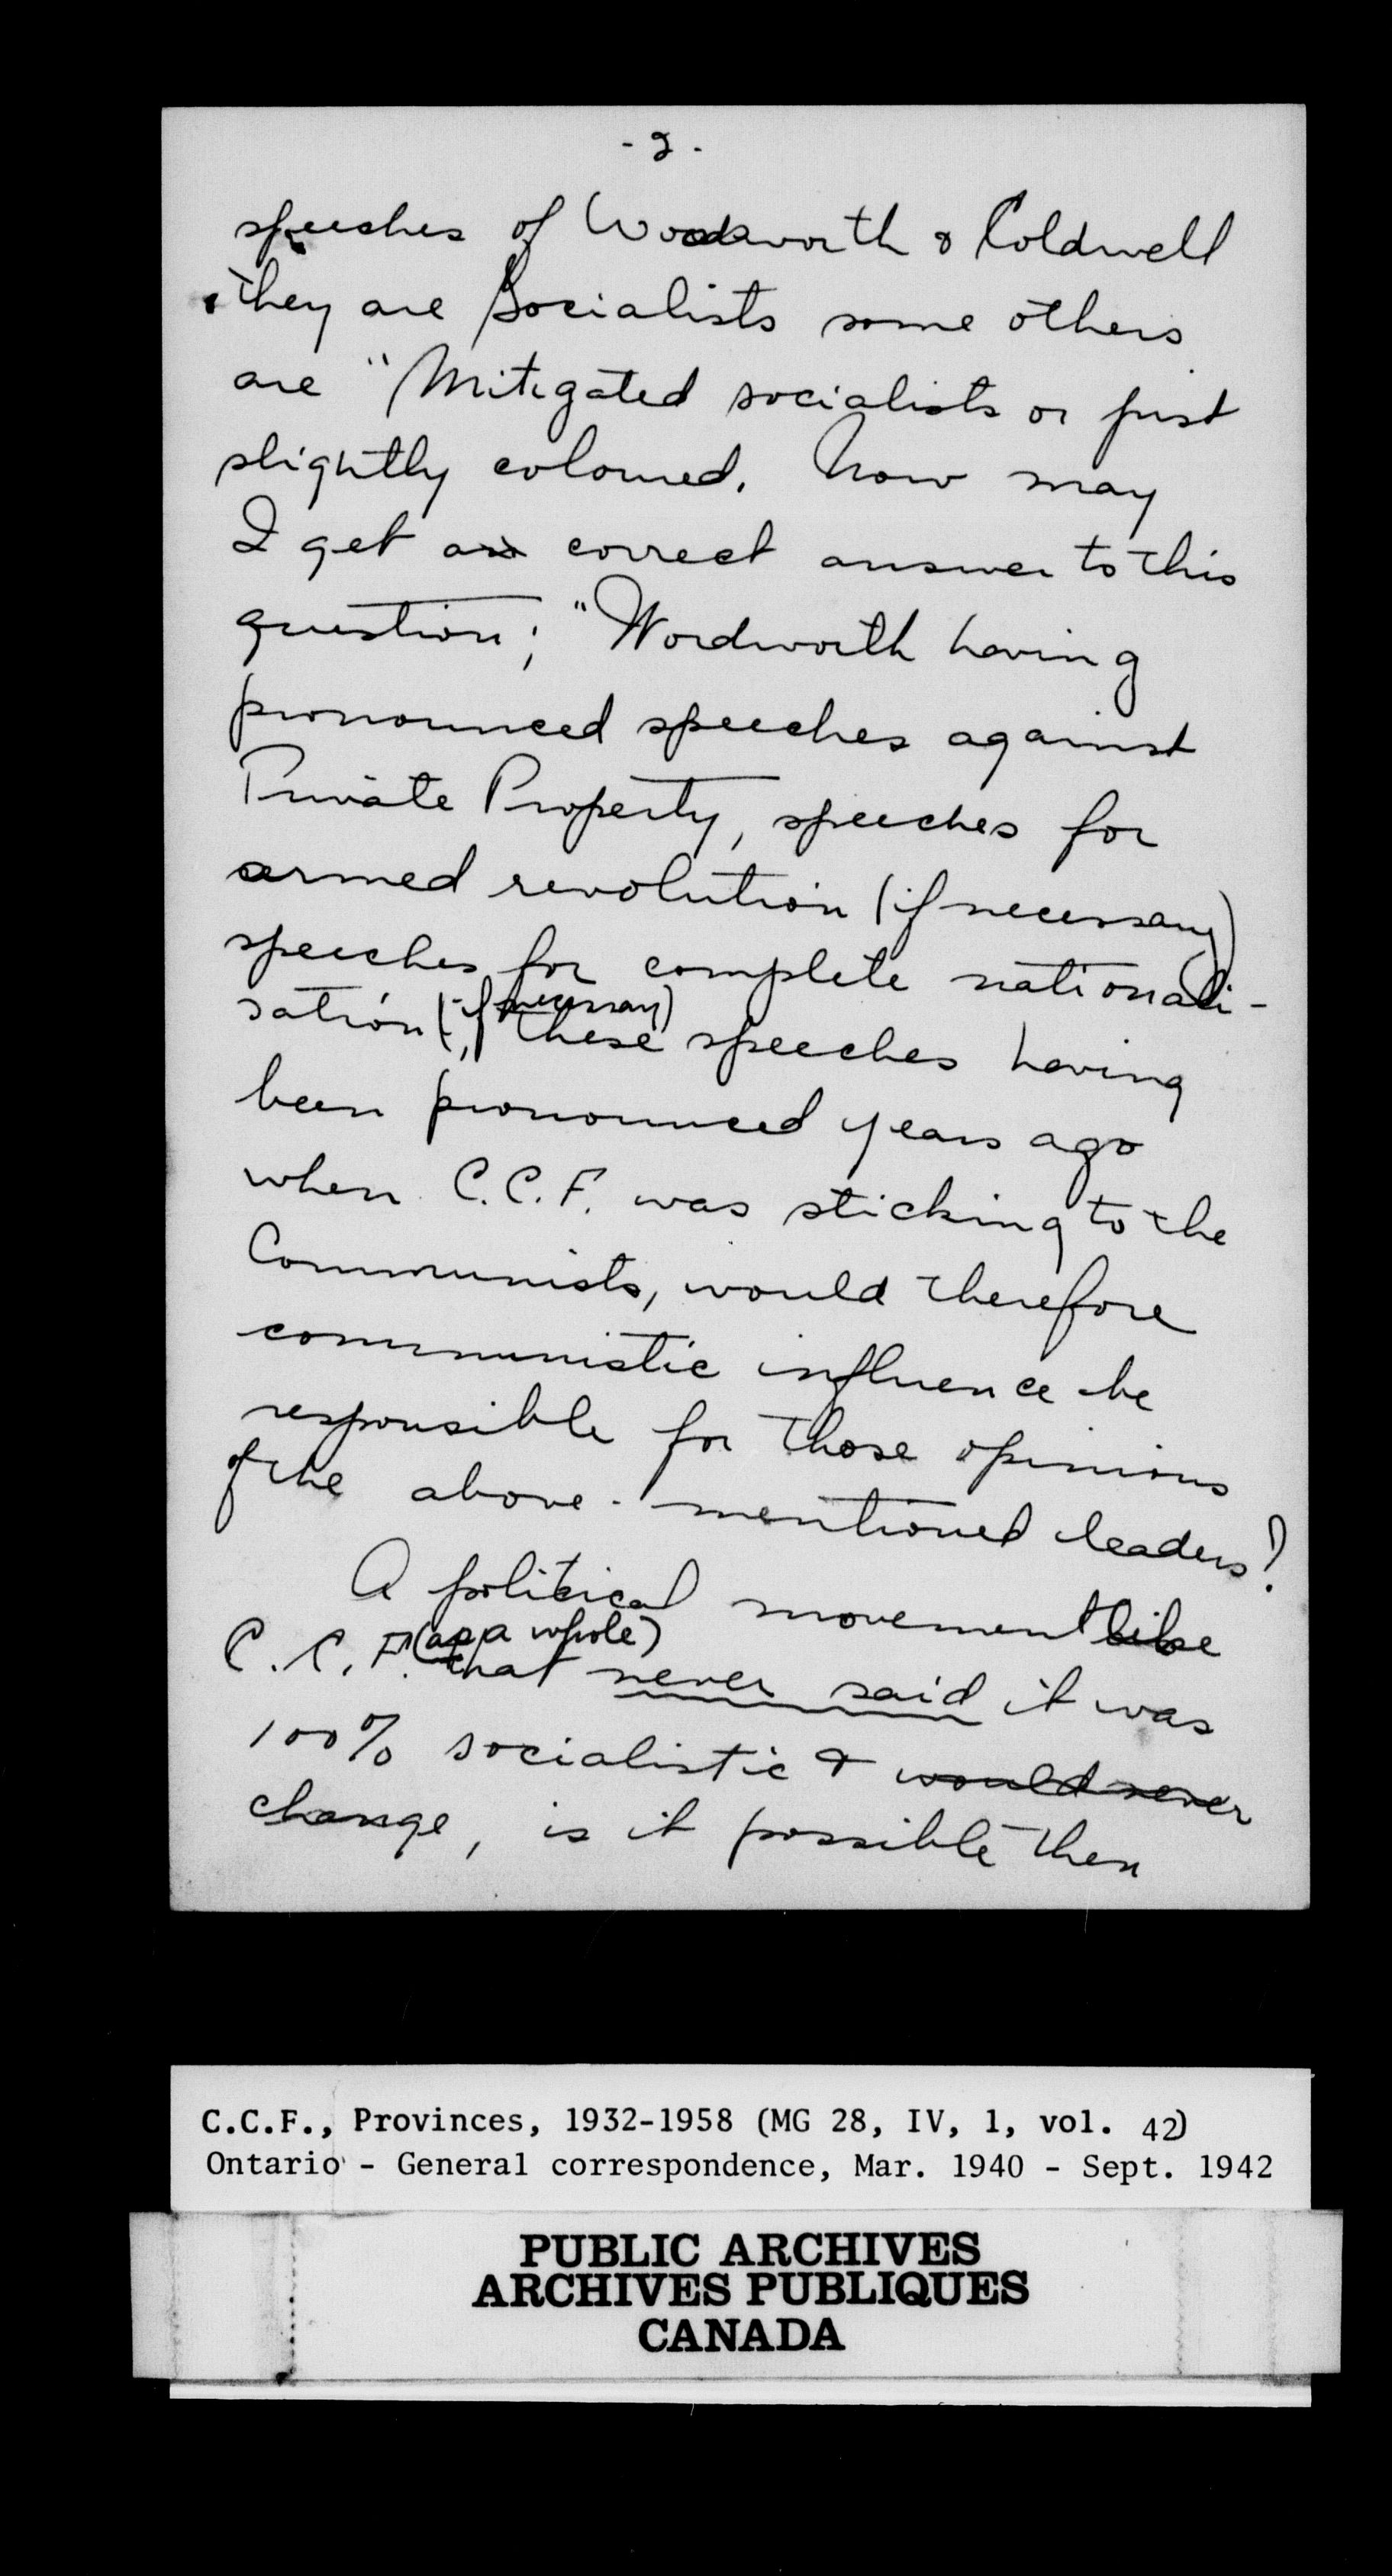 - 2 -
speeches of Woodsworth & Coldwell
they are Socialists some others
are "Mitigated socialists or just
slightly coloured. Now may
I get a correct answer to this
question; "Wordworth having
pronounced speeches against
Private Property, speeches for
armed revolution (if necessary)
speeches for complete nationali-
sation (if necessary), these speeches having
been pronounced years ago
when C.C.F. was sticking to the
Communists, would therefore
communistic influence be
responsible for those opinions
of the above-mentioned leaders?
A political movement like
C.C.F. (as a whole) that never said it was
100% socialistic & would never
change, is it possible then
C.C.F., Provinces, 1932-1958 (MG 28, IV, 1, vol. 42)
Ontario - General correspondence, Mar. 1940 - Sept. 1942
PUBLIC ARCHIVES
ARCHIVES PUBLIQUES
CANADA